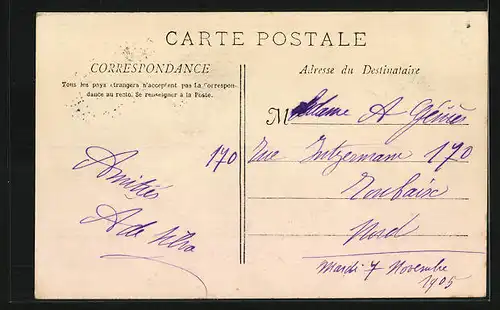 CARTE POSTALE
CORRESPONDANCE
Tous les pays étrangers n'acceptent pas la Correspon-
dance au recto. Se renseigner à la Poste.
Amitiés
A de
170
Adresse du Destinataire
Madame A
Rue 170
Roubaix
Nord
Mardi 7 Novembre
1905